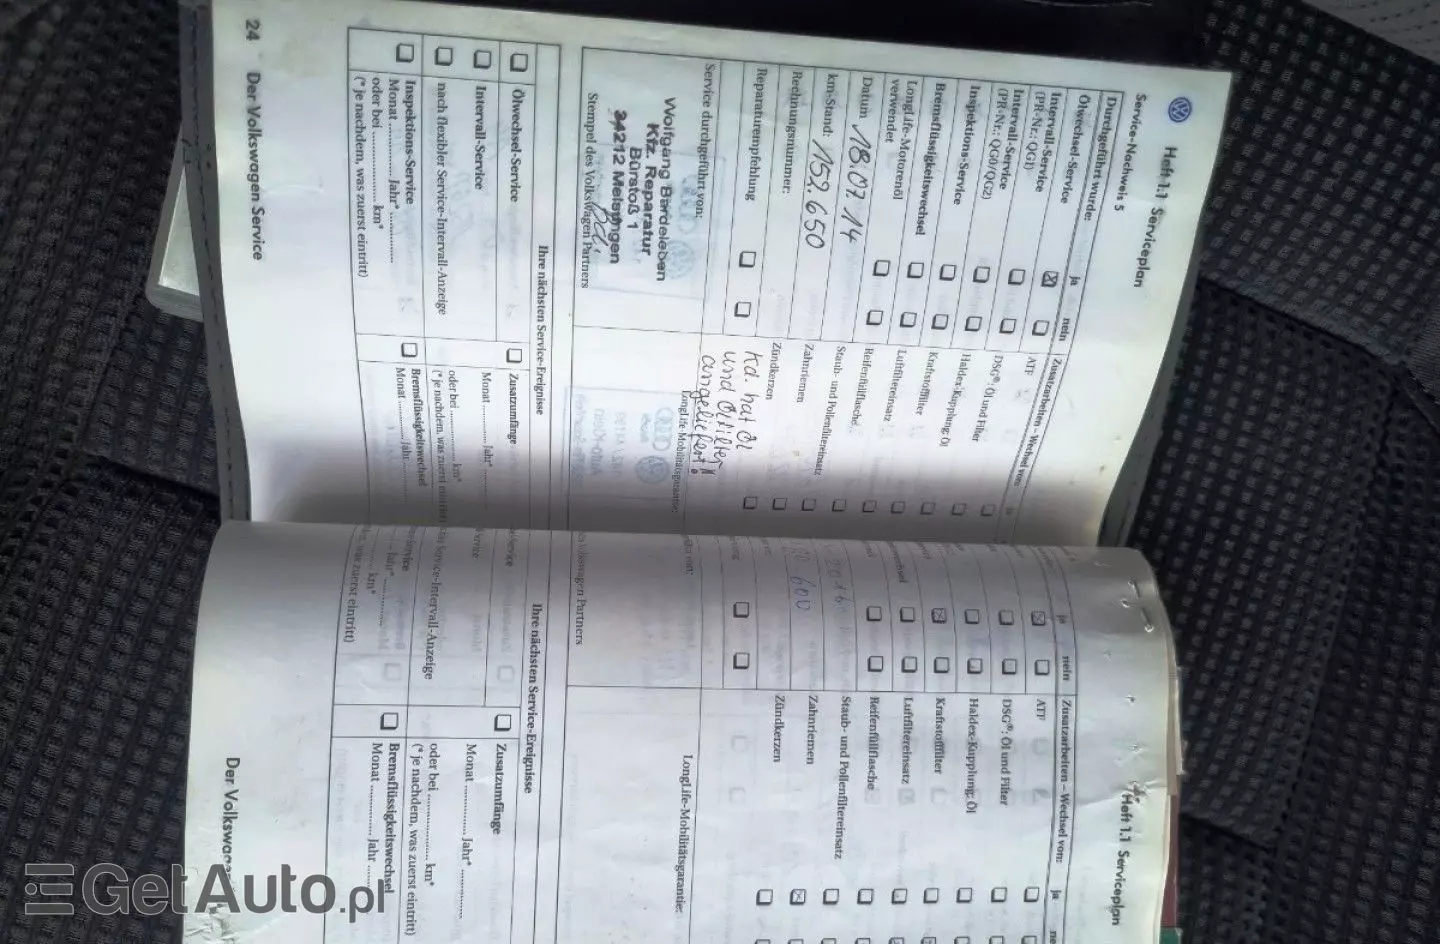 Heft 1.1 Serviceplan
Service-Nachweis 5
Durchgeführt wurde:
ja
nein
Zusatzarbeiten – Wechsel von:
ja
Ölwechsel-Service
Intervall-Service
(PR-Nr.: QG1)
ATF
Intervall-Service
(PR-Nr.: QG0/QG2)
DSG®: Öl und Filter
Inspektions-Service
Haldex-Kupplung: Öl
Bremsflüssigkeitswechsel
Kraftstofffilter
LongLife-Motorenöl
verwendet
Luftfiltereinsatz
Datum 18.07.14
Reifenfüllflasche
km-Stand: 152.650
Staub- und Pollenfiltereinsatz
Rechnungsnummer:
Zahnriemen
Reparaturempfehlung
Zündkerzen
Kd. hat Öl
und Ölfilter
angeliefert!
Service durchgeführt von:
LongLife-Mobilitätsgarantie:
Wolfgang Bardeleben
Kfz. Reparatur
Bürstoß 1
34212 Melsungen
Stempel des Volkswagen Partners
Ihre nächsten Service-Ereignisse
Ölwechsel-Service
Zusatzumfänge
Intervall-Service
Monat ............. Jahr* .............
nach flexibler Service-Intervall-Anzeige
oder bei ............. km*
(* je nachdem, was zuerst eintritt)
Inspektions-Service
Bremsflüssigkeitswechsel
Monat ............. Jahr* .............
Monat ............. Jahr .............
oder bei ............. km*
(* je nachdem, was zuerst eintritt)
24 Der Volkswagen Service
Heft 1.1 Serviceplan
ja
nein
Zusatzarbeiten – Wechsel von:
ja
ATF
DSG®: Öl und Filter
Haldex-Kupplung: Öl
Kraftstofffilter
Luftfiltereinsatz
Reifenfüllflasche
Staub- und Pollenfiltereinsatz
600
Zahnriemen
Zündkerzen
LongLife-Mobilitätsgarantie:
Volkswagen Partners
Ihre nächsten Service-Ereignisse
Zusatzumfänge
Monat ............. Jahr* .............
Service-Intervall-Anzeige
oder bei ............. km*
(* je nachdem, was zuerst eintritt)
Bremsflüssigkeitswechsel
Jahr* .............
Monat ............. Jahr .............
km*
was zuerst eintritt)
Der Volkswagen
GetAuto.pl